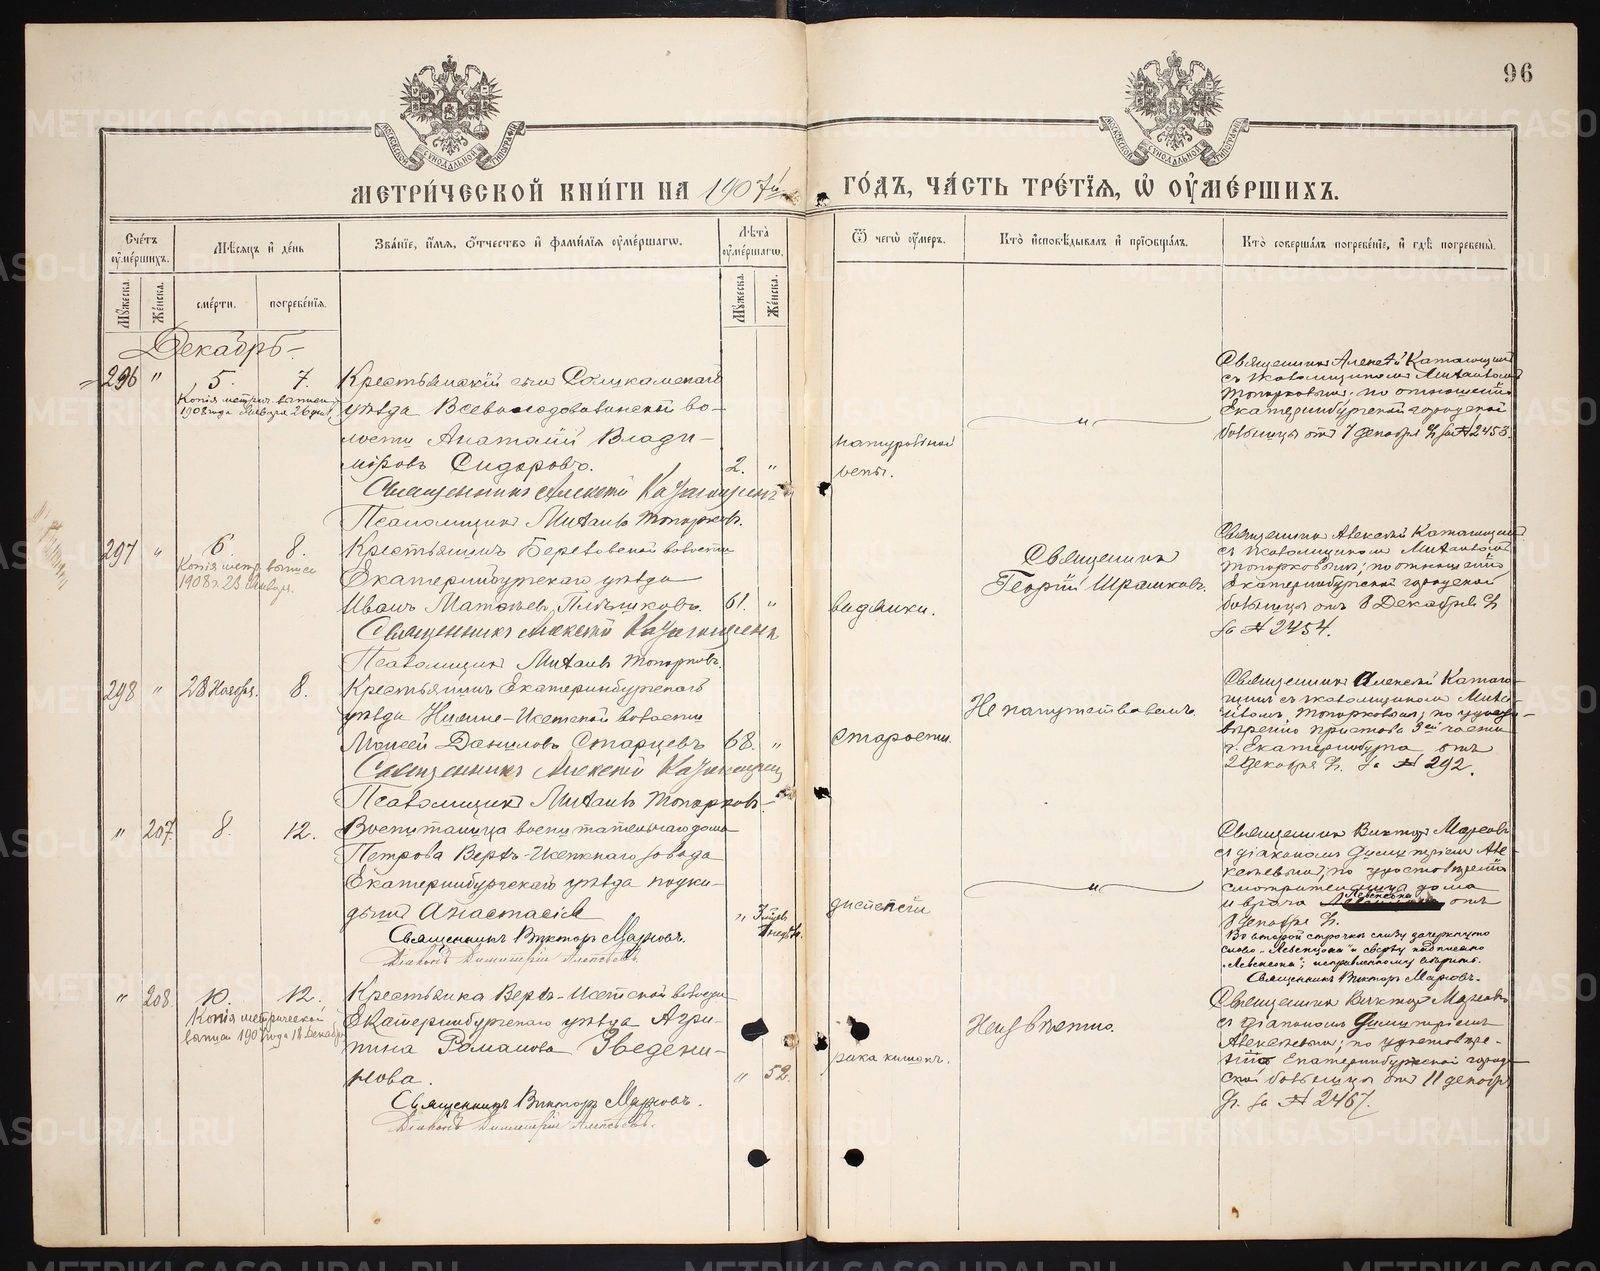 96
МОСКОВСКОЙ СѴНОДАЛЬНОЙ ТИПОГРАФІИ
МОСКОВСКОЙ СѴНОДАЛЬНОЙ ТИПОГРАФІИ
МЕТРИ́ЧЕСКОЙ КНИ́ГИ НА 1907й ГО́ДЪ, ЧА́СТЬ ТРЕ́ТІЯ, Ѡ ОУМЕ́РШИХЪ.
Сче́тъ оуме́ршихъ.
Мѣ́сяцъ и де́нь
Зва́ніе, и́мя, о́тчество и фами́лія оуме́ршагѡ.
Лѣ́та оуме́ршагѡ.
Ѿ чегѡ̀ оу́меръ.
Кто̀ исповѣ́дывалъ и пріѡбща́лъ.
Кто̀ соверша́лъ погребе́ніе, и гдѣ̀ погребены̀.
Му́жеска.
Же́нска.
сме́рти.
погребе́нія.
Му́жеска.
Же́нска.
Декабрь
296 " 5. 7.
Копія метрич. выписи
1908 года Января 26 дня
Крестьянскій сынъ Соликамскаго
уѣзда Всеволодовильвенской во-
лости Анатолій Влади-
міровъ Сидоровъ. 2. "
Священникъ Алексѣй
Псаломщикъ Михаилъ Топорковъ.
натуральной
оспы.
"
Священникъ Алексѣй
съ псаломщикомъ Михаиломъ
Топорковымъ, по отношенію
Екатеринбургской городской
больницы отъ 7 декабря за № 2453.
297 " 6. 8.
Копія метр. выписи
1908 г. 28 Января.
Крестьянинъ Березовской волости
Екатеринбургскаго уѣзда
Иванъ Матвѣевъ Плѣшковъ. 61. "
Священникъ Алексѣй
Псаломщикъ Михаилъ Топорковъ.
водянки.
Священникъ
Георгій
Священникъ Алексѣй
съ псаломщикомъ Михаиломъ
Топорковымъ, по отношенію
Екатеринбургской городской
больницы отъ 8 Декабря
за № 2454.
298 " 28 Ноября. 8.
Крестьянинъ Екатеринбургскаго
уѣзда Нижне-Исетской волости
Моисей Даниловъ Старцевъ 68. "
Священникъ Алексѣй
Псаломщикъ Михаилъ Топорковъ
Старости.
Не напутствованъ.
Священникъ Алексѣй
съ псаломщикомъ Миха-
иломъ Топорковымъ, по удосто-
вѣренію пристава 3ей части
г. Екатеринбурга отъ
2 декабря за № 292.
" 207. 8. 12.
Воспитаница воспитательнаго дома
Петрова Верхъ-Исетскаго завода
Екатеринбургскаго уѣзда подки-
дышъ Анастасія " 3 мѣс.
Священникъ Викторъ Марковъ.
Діаконъ Димитрій
диспепсіи
"
Священникъ Викторъ Марковъ
съ діакономъ Димитріемъ
по удостовѣренію
смотрительницы дома
и врача Левенсона отъ
8 декабря
Во второй строчкѣ снизу зачеркнуто
слово и сверху надписано
"Левенсона"; исправленному вѣрить.
Священникъ Викторъ Марковъ.
" 208. 10. 12.
Копія метрической
выписи 1907 года 18 Декабря
Крестьянка Верхъ-Исетской волости
Екатеринбургскаго уѣзда Агри-
пина Романова Зведени-
нова. " 52.
Священникъ Викторъ Марковъ.
Діаконъ Димитрій
рака кишокъ.
Неизвѣстно.
Священникъ Викторъ Марковъ
съ діакономъ Димитріемъ
по удостовѣре-
нію Екатеринбургской город-
ской больницы отъ 11 декабря
за № 2467.